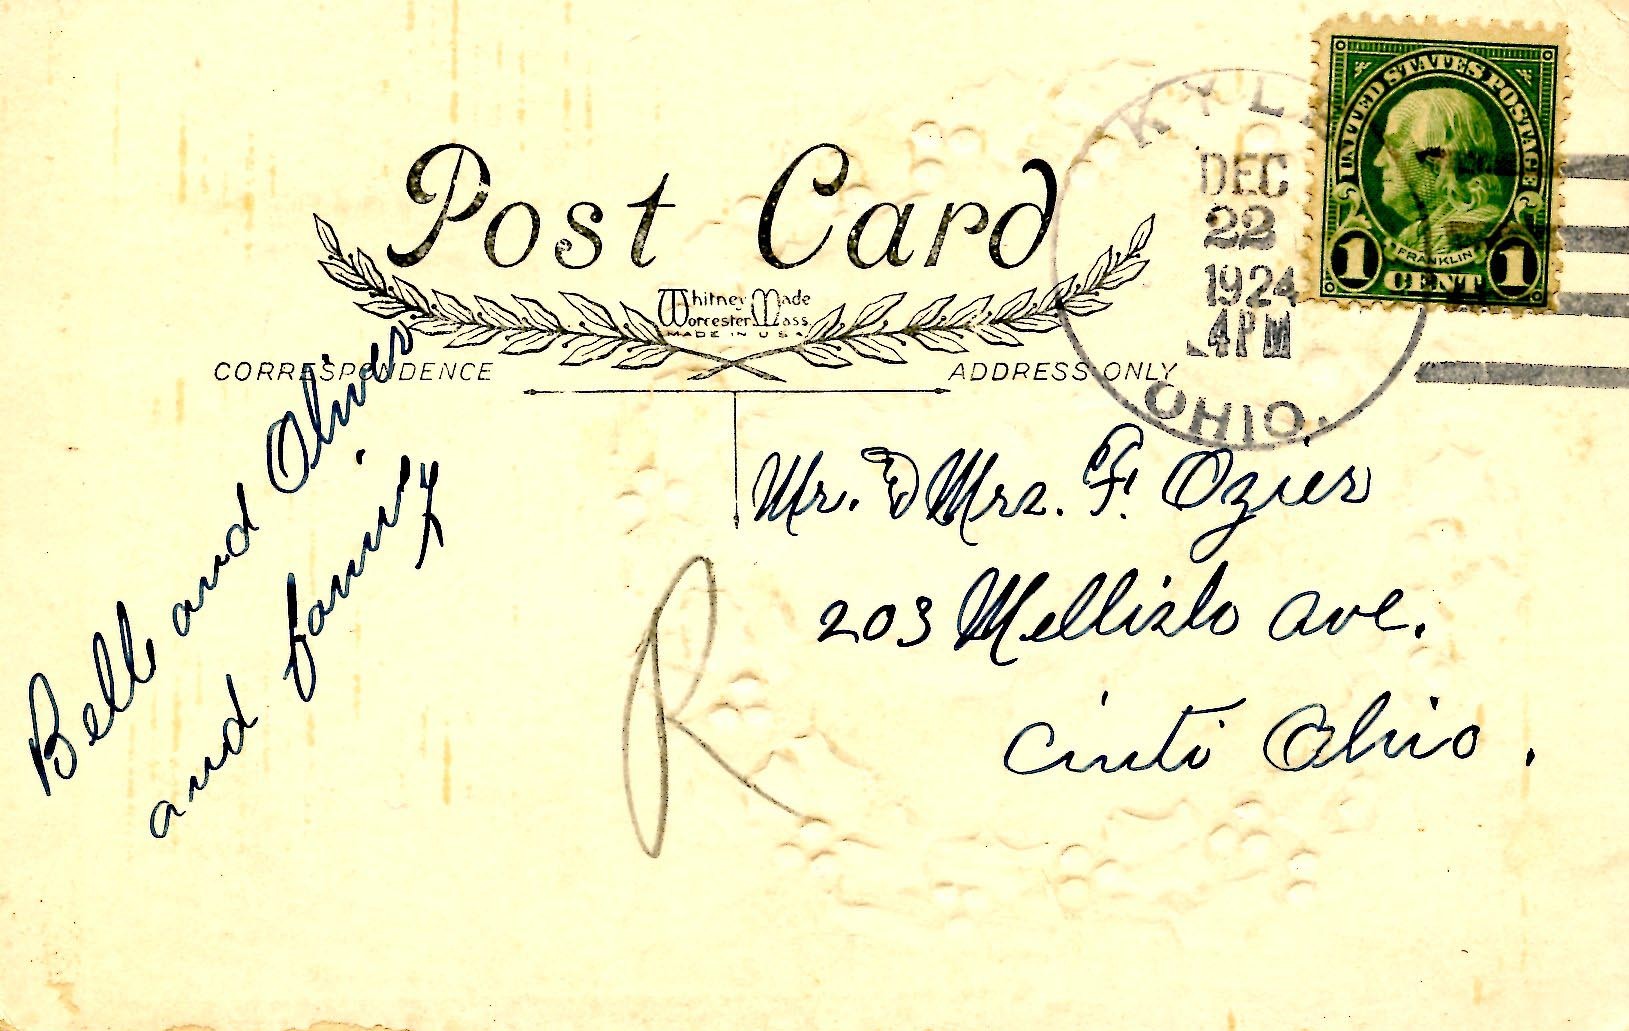 UNITED STATES POSTAGE
FRANKLIN
1 CENT 1
KYL
DEC
22
1924
4PM
OHIO.
Post Card
Whitney Made
Worcester Mass
MADE IN U S A
CORRESPONDENCE
ADDRESS ONLY
Belle and Oliver
and family
Mr. & Mrs. F. Ozier
203 Ave.
Cinti Ohio.
R